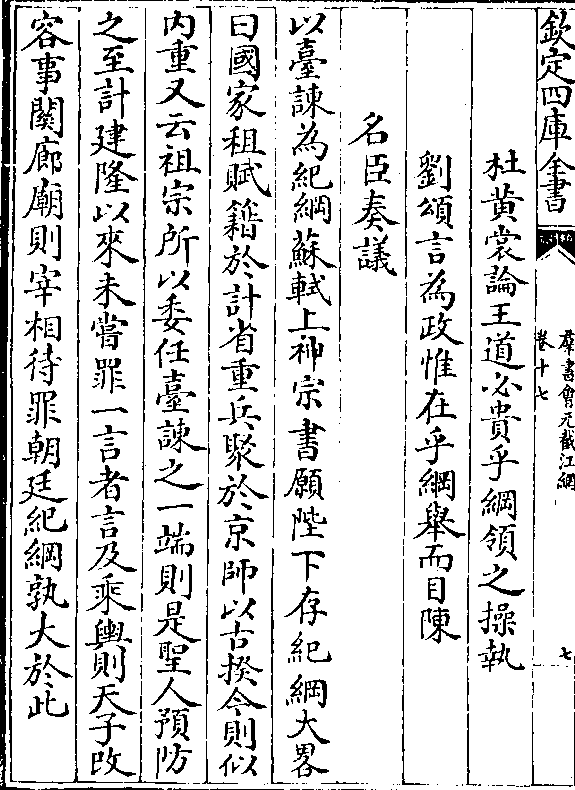 欽定四庫全書
羣書會元截江網
卷十七
七
杜黄裳論王道必貴乎綱領之操執
劉頌言為政惟在乎綱舉而目陳
名臣奏議
以臺諫為紀綱蘇軾上神宗書願陛下存紀綱大畧
曰國家租賦籍於計省重兵聚於京師以古揆今則似
内重又云祖宗所以委任臺諫之一端則是聖人預防
之至計建隆以來未嘗罪一言者言及乘輿則天子改
容事關廊廟則宰相待罪朝廷紀綱孰大於此